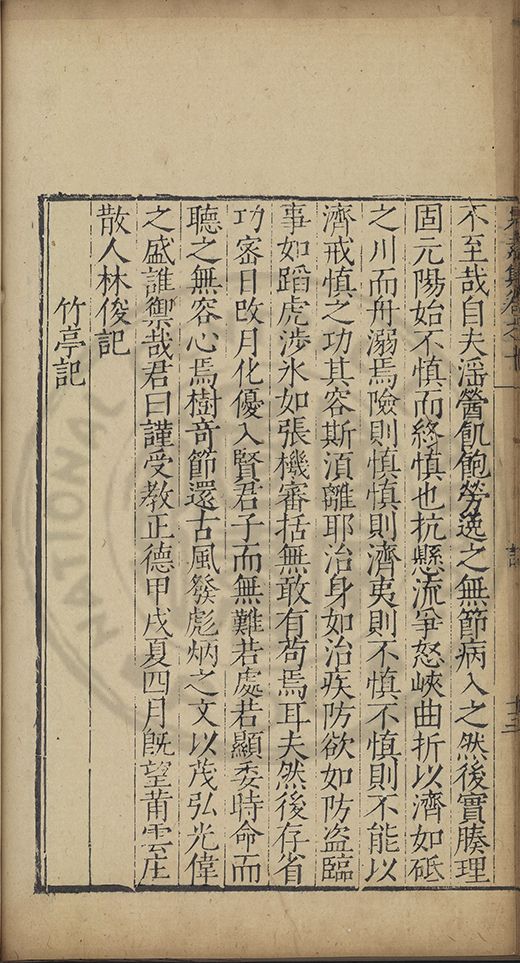 不至哉自夫淫醟飢飽勞逸之無節病入之然後實腠理
固元陽始不慎而終慎也抗懸流爭怒峽曲折以濟如砥
之川而舟溺焉險則慎慎則濟夷則不慎不慎則不能以
濟戒慎之功其容斯湏離耶治身如治疾防欲如防盗臨
事如蹈虎涉氷如張機審括無敢有苟焉耳夫然後存省
功密日改月化優入賢君子而無難若處若顯委時命而
聽之無容心焉樹竒節還古風發彪炳之文以茂弘光偉
之盛誰禦哉君曰謹受教正德甲戌夏四月旣望莆雲庄
散人林俊記
竹亭記